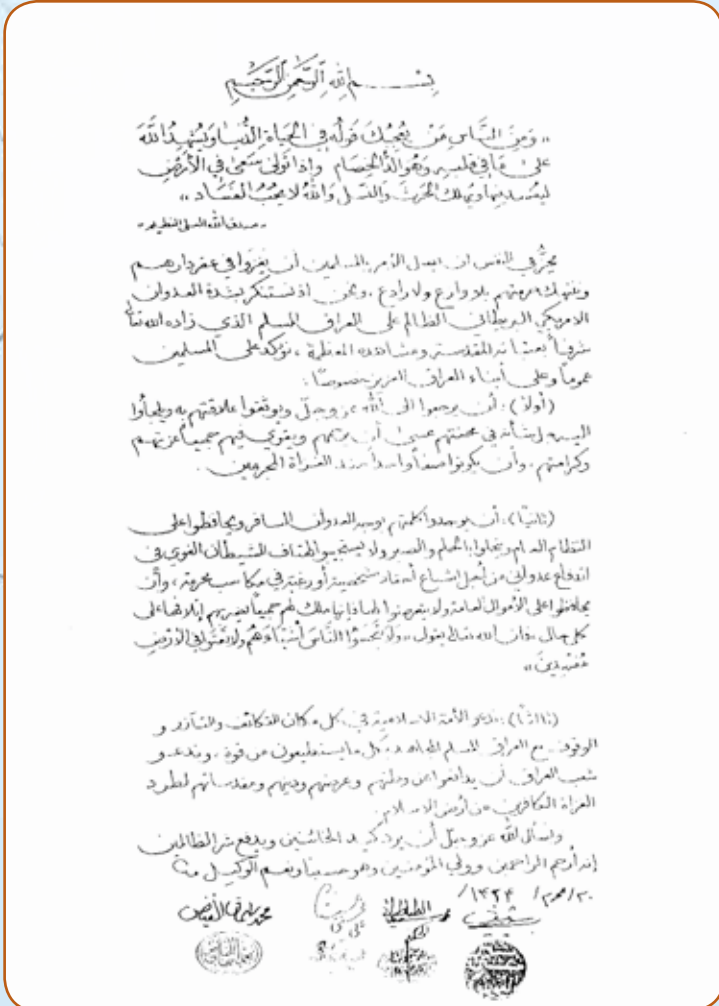 بِسْمِ اللَّهِ الرَّحْمَنِ الرَّحِيمِ
« وَمِنَ النَّاسِ مَنْ يُعْجِبُكَ قَوْلُهُ فِي الحَيَاةِ الدُّنْيَا وَيُشْهِدُ اللَّهَ
عَلَى مَا فِي قَلْبِهِ وَهُوَ أَلَدُّ الْخِصَامِ وَإِذَا تَوَلَّى سَعَى فِي الأَرْضِ
لِيُفْسِدَ فِيهَا وَيُهْلِكَ الحَرْثَ وَالنَّسْلَ وَاللَّهُ لَا يُحِبُّ الْفَسَادَ »
- صدق الله العلي العظيم -
يحزُّ في النفس ان يصل الأمر بالمسلمين أن يُغزَوا في عقر دارهم
وتنتهك حرمتهم بلا وازع ولا رادع . ونحن اذ نستنكر بشدة العدوان
الامريكي البريطاني الظالم على العراق المسلم الذي زاده الله تعالى
شرفاً بعتباته المقدسة ومشاهده المعظمة ، نؤكد على المسلمين
عموماً وعلى أبناء العراق العزيز خصوصاً :
(أولاً) : أن يرجعوا الى الله عز وجل ويوثقوا علاقتهم به ويلجأوا
اليه في محنتهم عسى أن يرحمهم ويقوي فيهم جميعاً عزتهم
وكرامتهم . وأن يكونوا صفاً واحداً ضد الغزاة المجرمين .
(ثانياً) : أن يوحدوا كلمتهم بوجه العدوان السافر ويحافظوا على
النظام العام ويتحلوا بالحلم والصبر ولا يستجيبوا لهتاف الشيطان الغوي في
اندفاع عدواني من أجل اشباع أحقاد شخصية أو رغبة في مكاسب محرمة ، وأن
يحافظوا على الأموال العامة ولا يتعرضوا لها فإنها ملك لهم جميعاً يضر بهم إتلافها على
كل حال ، فان الله تعالى يقول « وَلَا تَبْخَسُوا النَّاسَ أَشْيَاءَهُمْ وَلَا تَعْثَوْا فِي الأَرْضِ
مُفْسِدِينَ »
(ثالثاً) : ندعو الأمة الاسلامية في كل مكان للتكاتف والتآزر و
الوقوف مع العراق المسلم المجاهد بكل ما يستطيعون من قوة ، وندعو
شعب العراق أن يدافعوا عن وطنهم وعرضهم ودينهم ومقدساتهم لطرد
الغزاة الكافرين من أرض الاسلام .
ونسأل الله عز وجل أن يرد كيد الخائنين ويدفع شر الظالمين
إنه أرحم الراحمين وولي المؤمنين وهو حسبنا ونعم الوكيل
٢٠/محرم/١٤٢٤
محمد اسحاق الفياض